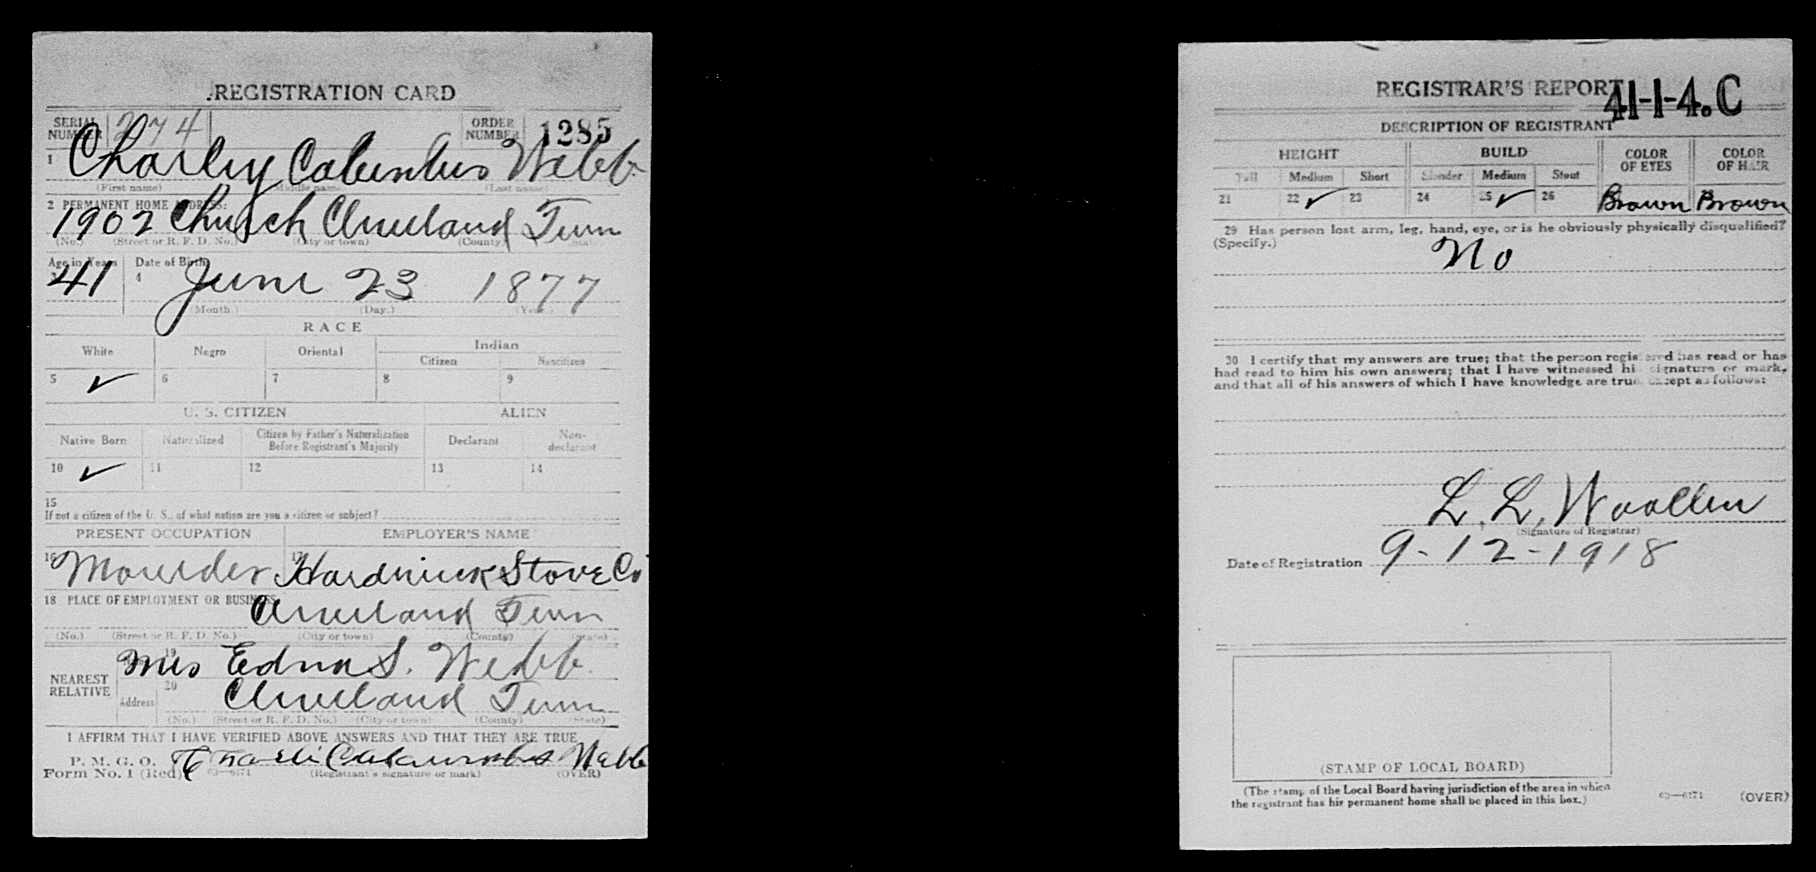 REGISTRATION CARD
SERIAL NUMBER 274 ORDER NUMBER 1285
1 Charley Columbus Webb
(First name) (Middle name) (Last name)
2 PERMANENT HOME ADDRESS:
1902 Church Cleveland Tenn
(No.) (Street or R. F. D. No.) (City or town) (County) (State)
Age in Years Date of Birth
3 41 4 June 23 1877
(Month.) (Day.) (Year.)
RACE
White Negro Oriental Indian
Citizen Noncitizen
5 ✓ 6 7 8 9
U. S. CITIZEN ALIEN
Native Born Naturalized Citizen by Father's Naturalization Before Registrant's Majority Declarant Non-declarant
10 ✓ 11 12 13 14
15
If not a citizen of the U. S., of what nation are you a citizen or subject?
PRESENT OCCUPATION EMPLOYER'S NAME
16 Moulder 17 Hardwick Stove Co
18 PLACE OF EMPLOYMENT OR BUSINESS:
Cleveland Tenn
(No.) (Street or R. F. D. No.) (City or town) (County) (State)
NEAREST RELATIVE 19 Mrs Edna S. Webb
Address 20 Cleveland Tenn
(No.) (Street or R. F. D. No.) (City or town) (County) (State)
I AFFIRM THAT I HAVE VERIFIED ABOVE ANSWERS AND THAT THEY ARE TRUE
P. M. G. O.
Form No. 1 (Red) 03—6171 (Registrant's signature or mark) (OVER)
Webb
REGISTRAR'S REPORT
41-1-4.C
DESCRIPTION OF REGISTRANT
HEIGHT BUILD COLOR OF EYES COLOR OF HAIR
Tall Medium Short Slender Medium Stout
21 22 ✓ 23 24 25 ✓ 26 Brown Brown
29 Has person lost arm, leg, hand, eye, or is he obviously physically disqualified?
(Specify.)
No
30 I certify that my answers are true; that the person registered has read or has
had read to him his own answers; that I have witnessed his signature or mark,
and that all of his answers of which I have knowledge are true, except as follows:
L. L. Woollen
(Signature of Registrar)
Date of Registration 9-12-1918
(STAMP OF LOCAL BOARD)
(The stamp of the Local Board having jurisdiction of the area in which
the registrant has his permanent home shall be placed in this box.)
03—6171 (OVER)